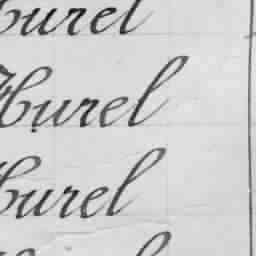 Hurel
Hurel
Hurel